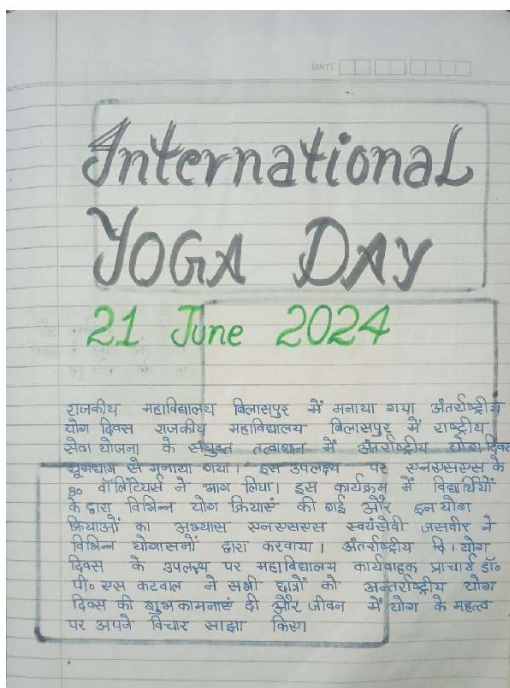 DATE
International
YOGA DAY
21 June 2024
राजकीय महाविद्यालय बिलासपुर में मनाया गया अंतर्राष्ट्रीय
योग दिवस राजकीय महाविद्यालय बिलासपुर में राष्ट्रीय
सेवा योजना के संयुक्त तत्वाधान में अंतर्राष्ट्रीय योग दिवस
धूमधाम से मनाया गया। इस उपलक्ष्य पर एनएसएस के
80 वॉलिंटियर्स ने भाग लिया। इस कार्यक्रम में विद्यार्थियों
के द्वारा विभिन्न योग क्रियाएं की गई और इन योग
क्रियाओं का अभ्यास एनएसएस स्वयंसेवी जसवीर ने
विभिन्न योगासनों द्वारा करवाया। अंतर्राष्ट्रीय योग
दिवस के उपलक्ष्य पर महाविद्यालय कार्यवाहक प्राचार्य डॉ०
पी० एस कटवाल ने सभी छात्रों को अन्तर्राष्ट्रीय योग
दिवस की शुभकामनाएं दी और जीवन में योग के महत्व
पर अपने विचार साझा किए